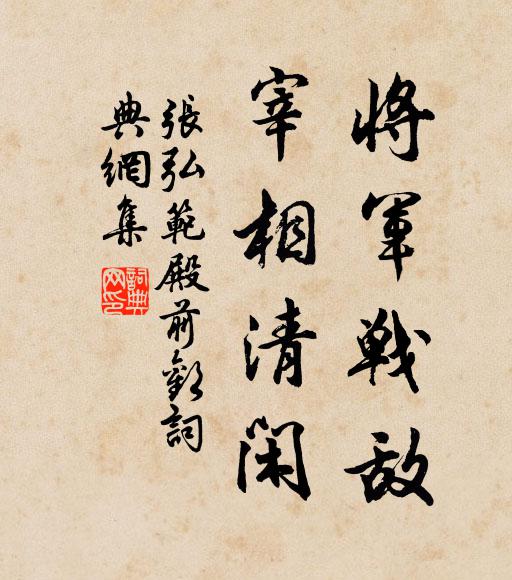 将軍戦敌
宰相清閑
張弘範殿前歡詞
典網集
詞典
网印